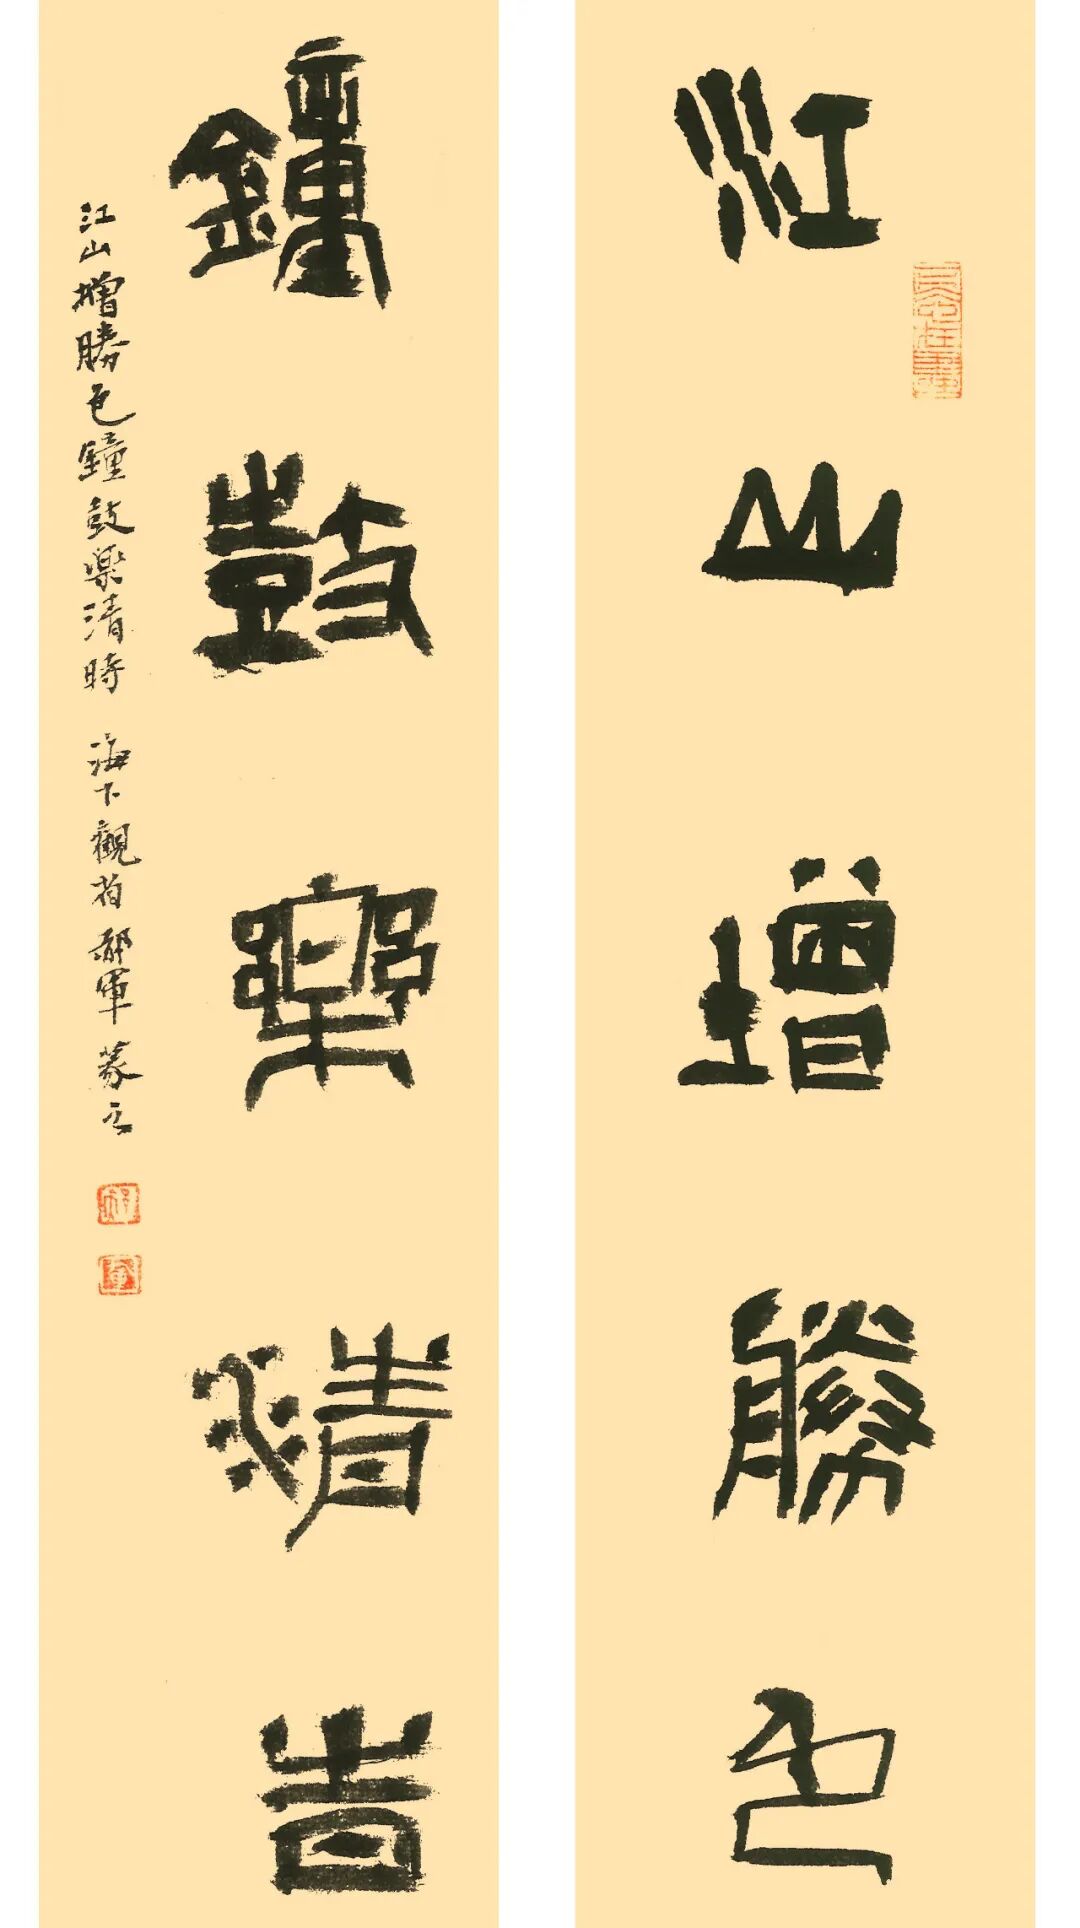 江山增勝色
鐘鼓樂清時
江山增勝色鐘鼓樂清時 海下觀
郝軍篆之